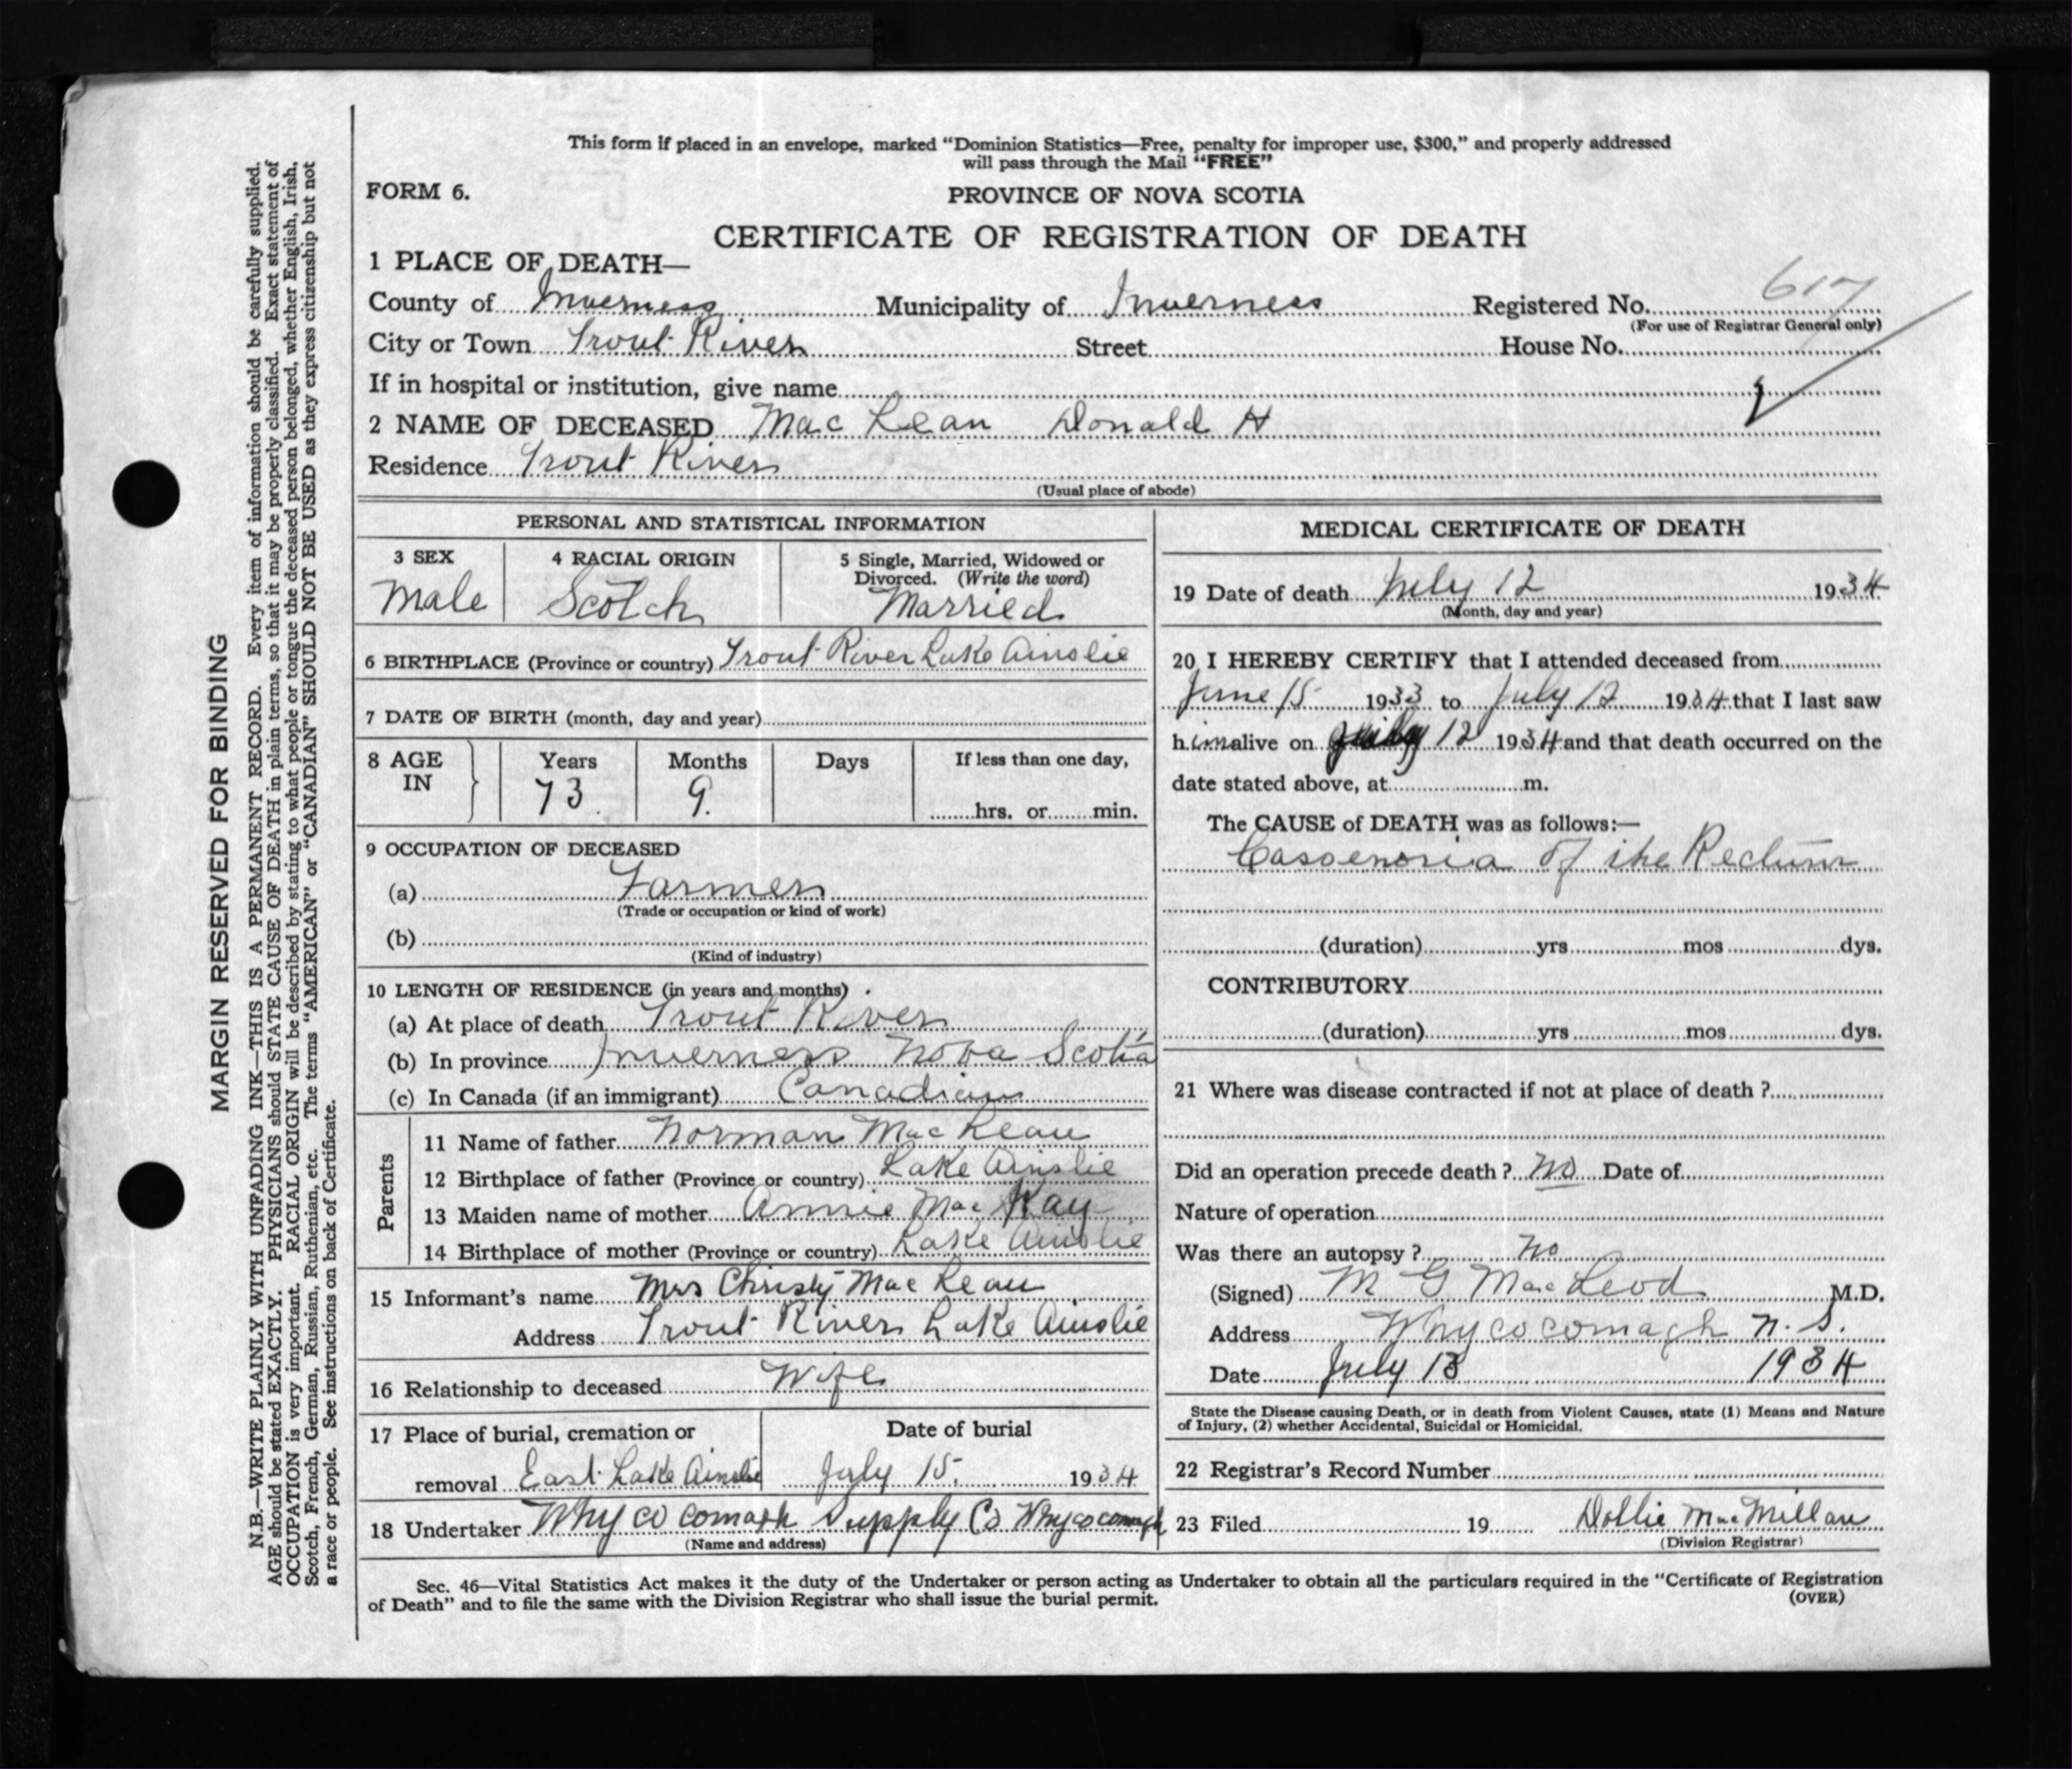 This form if placed in an envelope, marked “Dominion Statistics—Free, penalty for improper use, $300,” and properly addressed
will pass through the Mail “FREE”
FORM 6.
PROVINCE OF NOVA SCOTIA
CERTIFICATE OF REGISTRATION OF DEATH
1 PLACE OF DEATH—
County of Inverness Municipality of Inverness Registered No. 617
(For use of Registrar General only)
City or Town Trout River Street House No.
If in hospital or institution, give name
2 NAME OF DECEASED Mac Lean Donald H
Residence Trout River
(Usual place of abode)
PERSONAL AND STATISTICAL INFORMATION
3 SEX 4 RACIAL ORIGIN 5 Single, Married, Widowed or
Divorced. (Write the word)
Male Scotch Married
6 BIRTHPLACE (Province or country) Trout River Lake Ainslie
7 DATE OF BIRTH (month, day and year)
8 AGE IN Years Months Days If less than one day,
73 9 hrs. or min.
9 OCCUPATION OF DECEASED
(a) Farmer
(Trade or occupation or kind of work)
(b)
(Kind of industry)
10 LENGTH OF RESIDENCE (in years and months)
(a) At place of death Trout River
(b) In province Inverness Nova Scotia
(c) In Canada (if an immigrant) Canadian
Parents
11 Name of father Norman Mac Lean
12 Birthplace of father (Province or country) Lake Ainslie
13 Maiden name of mother Annie Mac Kay
14 Birthplace of mother (Province or country) Lake Ainslie
15 Informant's name Mrs Christy Mac Lean
Address Trout River Lake Ainslie
16 Relationship to deceased Wife
17 Place of burial, cremation or Date of burial
removal East Lake Ainslie July 15. 1934
18 Undertaker Whycocomagh Supply Co Whycocomagh
(Name and address)
MEDICAL CERTIFICATE OF DEATH
19 Date of death July 12 1934
(Month, day and year)
20 I HEREBY CERTIFY that I attended deceased from
June 15 1933 to July 12 1934 that I last saw
him alive on July 12 1934 and that death occurred on the
date stated above, at m.
The CAUSE of DEATH was as follows:—
of the Rectum
(duration) yrs mos dys.
CONTRIBUTORY
(duration) yrs mos dys.
21 Where was disease contracted if not at place of death ?
Did an operation precede death ? No Date of
Nature of operation
Was there an autopsy ? No
(Signed) M G MacLeod M.D.
Address Whycocomagh N.S.
Date July 13 1934
State the Disease causing Death, or in death from Violent Causes, state (1) Means and Nature
of Injury, (2) whether Accidental, Suicidal or Homicidal.
22 Registrar's Record Number
23 Filed 19 Dollie MacMillan
(Division Registrar)
Sec. 46—Vital Statistics Act makes it the duty of the Undertaker or person acting as Undertaker to obtain all the particulars required in the “Certificate of Registration
of Death” and to file the same with the Division Registrar who shall issue the burial permit.
(OVER)
MARGIN RESERVED FOR BINDING
N.B.—WRITE PLAINLY WITH UNFADING INK—THIS IS A PERMANENT RECORD. Every item of information should be carefully supplied.
AGE should be stated EXACTLY. PHYSICIANS should STATE CAUSE OF DEATH in plain terms, so that it may be properly classified. Exact statement of
OCCUPATION is very important. RACIAL ORIGIN will be described by stating to what people or tongue the deceased person belonged, whether English, Irish,
Scotch, French, German, Russian, Ruthenian, etc. The terms “AMERICAN” or “CANADIAN” SHOULD NOT BE USED as they express citizenship but not
a race or people. See instructions on back of Certificate.